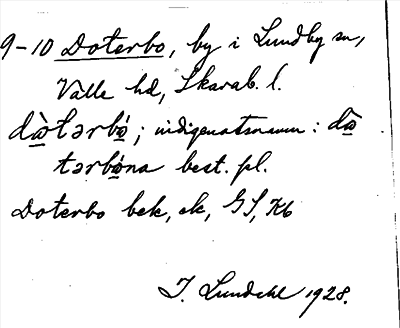 9-10 Doterbo, by i Lundby sn,
Valle hd, Skarab. l.
dὰ̱tərbó̱; indigenatsnamn: dὰ̱
tərbó̱na best. pl.
Doterbo bek, ek, GS, Kb
I. Lundahl 1928.